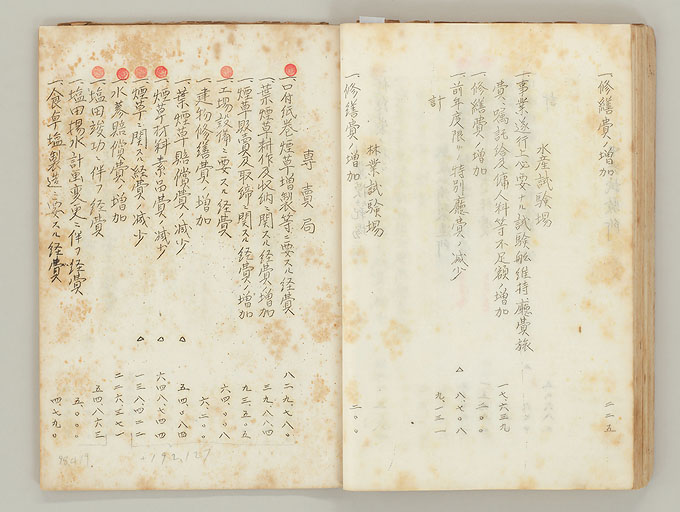 一、修繕費ノ増加 二二五
水産試験場
一、事業遂行上必要ナル試験船維持廳費旅
費、嘱託給及傭人料等不足額ノ増加 一七、六三九
一、修繕費ノ増加
一、前年度限リノ特別廳費ノ減少 △ 八、七〇八
計 九、一三一
林業試験場
一、修繕費ノ増加 二〇〇
専賣局
一、口付紙巻煙草増製等ニ要スル経費 八二九、七八〇
一、葉煙草耕作及收納ニ関スル経費ノ増加
一、煙草販賣及取締ニ関スル経費ノ増加
一、工場設備ニ要スル経費 六四、〇〇八
一、建物修繕費ノ増加 六、二〇〇
一、葉煙草賠償費ノ減少 △ 五四〇、八四四
一、煙草材料素品費ノ減少 △
一、煙草ニ関スル経費ノ減少 △
一、水蔘賠償費ノ増加
一、塩田竣功ニ伴フ経費 五四、八六三
一、塩田揚水計畫変更ニ伴フ経費 五、〇〇〇
一、食卓塩製造ニ要スル経費 四、七九〇
792,127